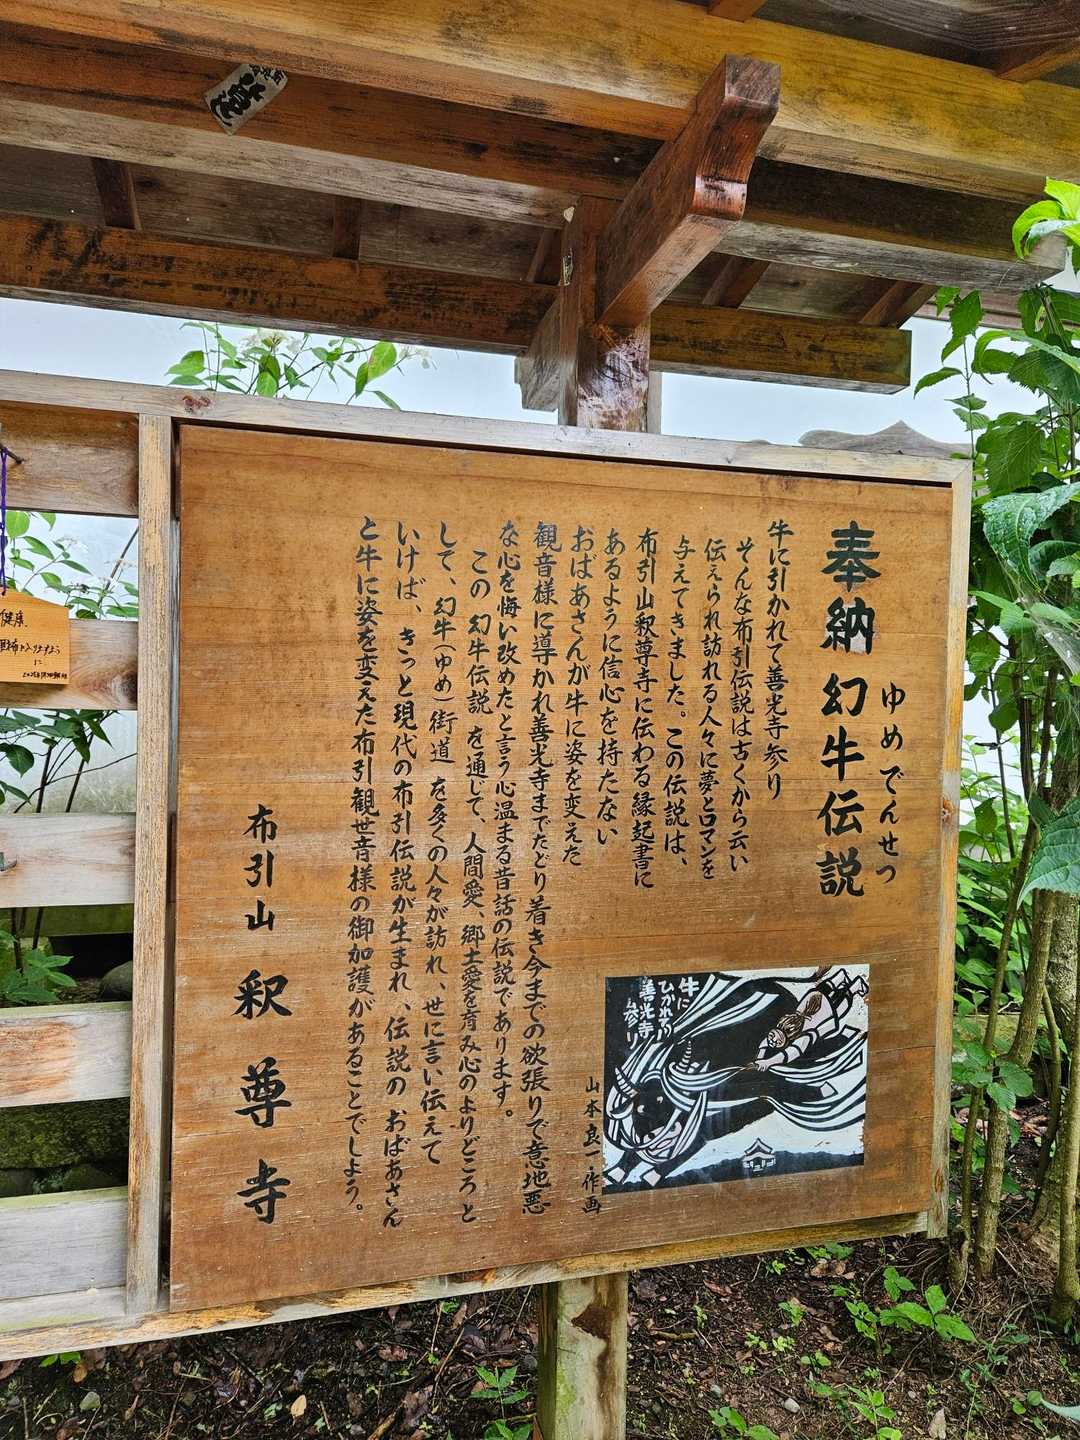 奉納 幻牛伝説
ゆめでんせつ
牛に引かれて善光寺参り
そんな布引伝説は古くから云い
伝えられ訪れる人々に夢とロマンを
与えてきました。この伝説は、
布引山釈尊寺に伝わる縁起書に
あるように信心を持たない
おばあさんが牛に姿を変えた
観音様に導かれ善光寺までたどり着き今までの欲張りで意地悪
な心を悔い改めたと言う心温まる昔話の伝説であります。
この 幻牛伝説 を通じて、人間愛、郷土愛を育み心のよりどころと
して、幻牛(ゆめ)街道 を多くの人々が訪れ、世に言い伝えて
いけば、きっと現代の布引伝説が生まれ、伝説の おばあさん
と牛に姿を変えた布引観世音様の御加護があることでしょう。
布引山 釈尊寺
牛に
ひかれて
善光寺
参り
山本良一・作画
健康
に